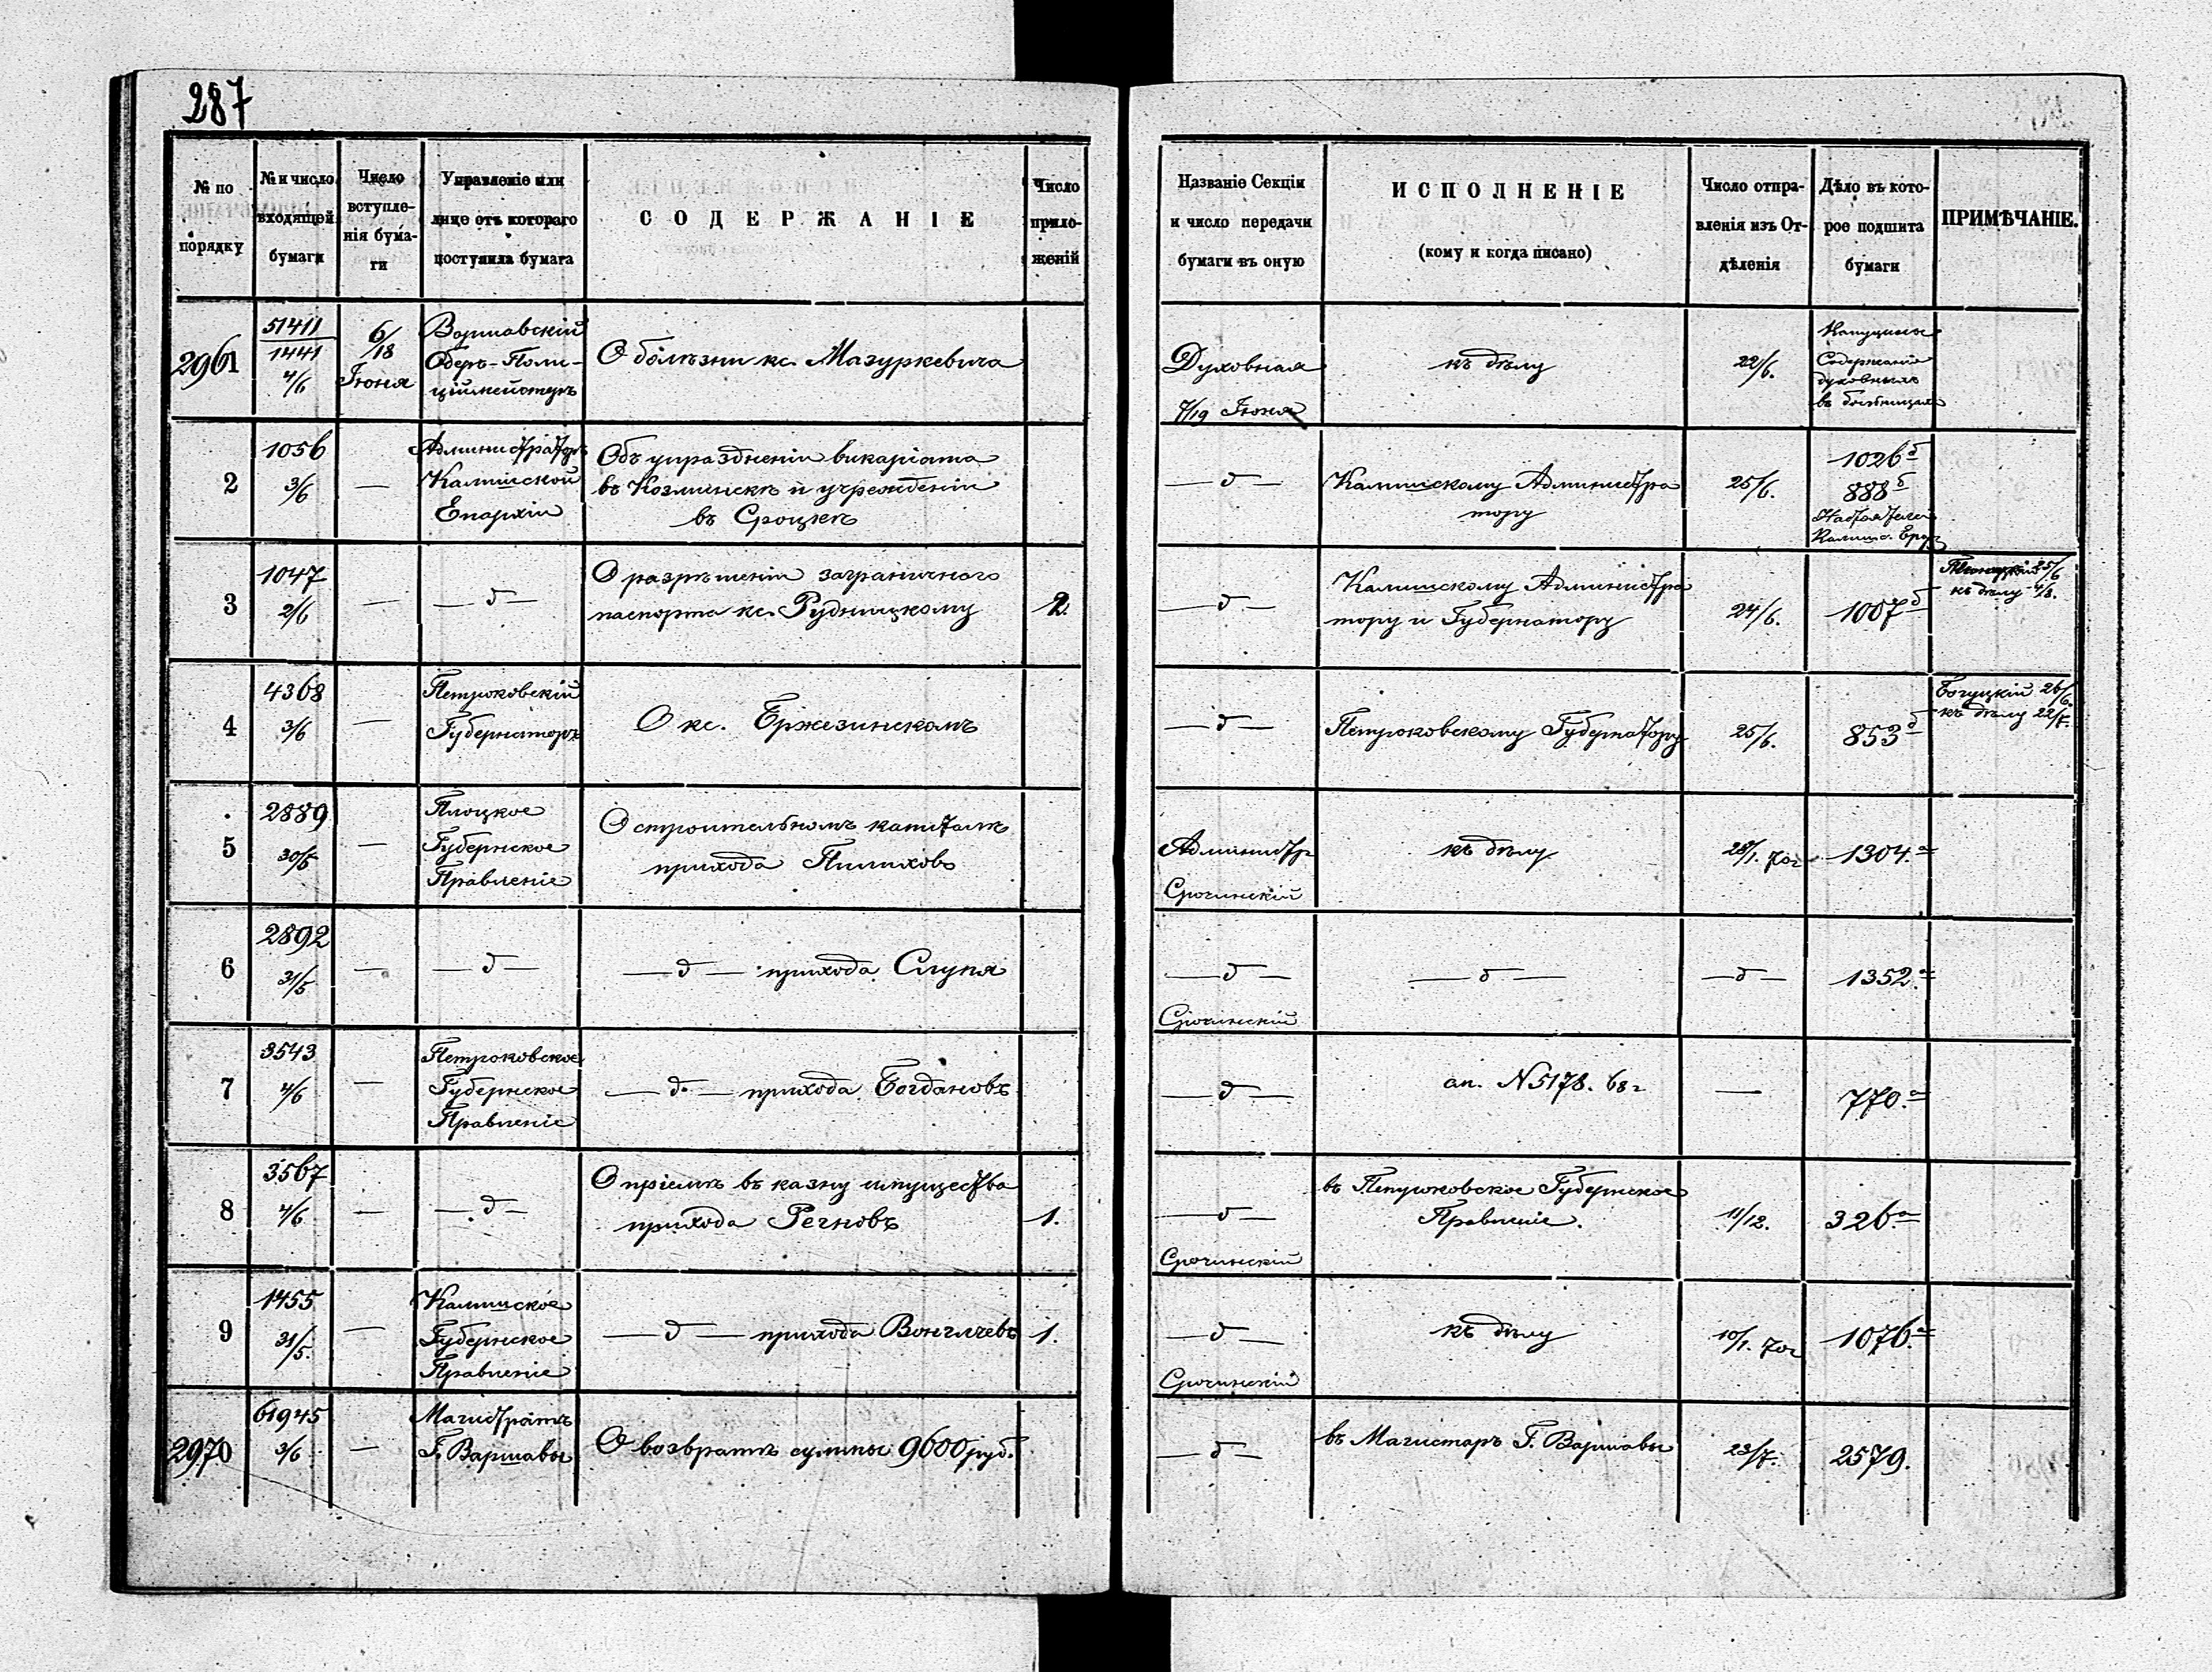 287
№ по порядку
№ и число входящей бумаги
Число вступле-нія бума-ги
Управленіе или лице отъ котораго поступила бумага
СОДЕРЖАНІЕ
Число прило-женій
Названіе Секціи и число передачи бумаги въ оную
ИСПОЛНЕНІЕ
(кому и когда писано)
Число отпра-вленія изъ От-дѣленія
Дѣло въ кото-рое подшита бумаги
ПРИМѢЧАНІЕ.
2961
51411
1441
4/6
6/18
Іюня
Варшавскій
Оберъ-Поли-
ціймейстеръ
О болѣзни кс. Мазуркевича
Духовная
7/19 Іюня
къ дѣлу
22/6.
Содержаніе
духовныхъ
въ больницахъ
2
1056
3/6
—
Администраторъ
Калишской
Епархіи
Объ упраздненіи викаріата
въ Козминскѣ и учрежденіи
въ Сроцкѣ
— д —
Калишскому Администра
тору
25/6.
1026 б
888 б
3
1047
2/6
—
— д —
О разрѣшеніи заграничного
паспорта кс. Рудницкому
2
— д —
Калишскому Администра
тору и Губернатору
24/6.
1007 б
25/6
къ дѣлу 4/8.
4
4368
3/6
—
Петроковскій
Губернаторъ
О кс. Бржезинскомъ
— д —
Петроковскому Губернатору
25/6.
853 б
Богуцкій 26/6.
къ дѣлу 22/7.
5
2889
30/5
—
Плоцкое
Губернское
Правленіе
О строительномъ капиталѣ
прихода
Администр
Срочинскій
къ дѣлу
28/1. 70г
1304. а
6
2892
31/5
—
— д —
— д — прихода Слупя
— д —
Срочинскій
— д —
— д —
1352. а
7
3543
4/6
—
Петроковское
Губернское
Правленіе
— д — прихода Богдановъ
— д —
ап. N 5178. 68г
—
770. а
8
3567
4/6
—
— д —
О пріемѣ въ казну имущества
прихода Регновъ
1.
— д —
Срочинскій
въ Петроковское Губернское
Правленіе.
11/12.
326 а
9
1455
31/5.
—
Калишское
Губернское
Правленіе
— д — прихода Вонглчевъ
1.
— д —
Срочинскій
къ дѣлу
10/1. 70г
1076. а
2970
61945
3/6
—
Магистратъ
Г. Варшавы
О возвратѣ суммы 9600 руб.
— д —
въ Магистаръ Г. Варшавы
23/7.
2579.